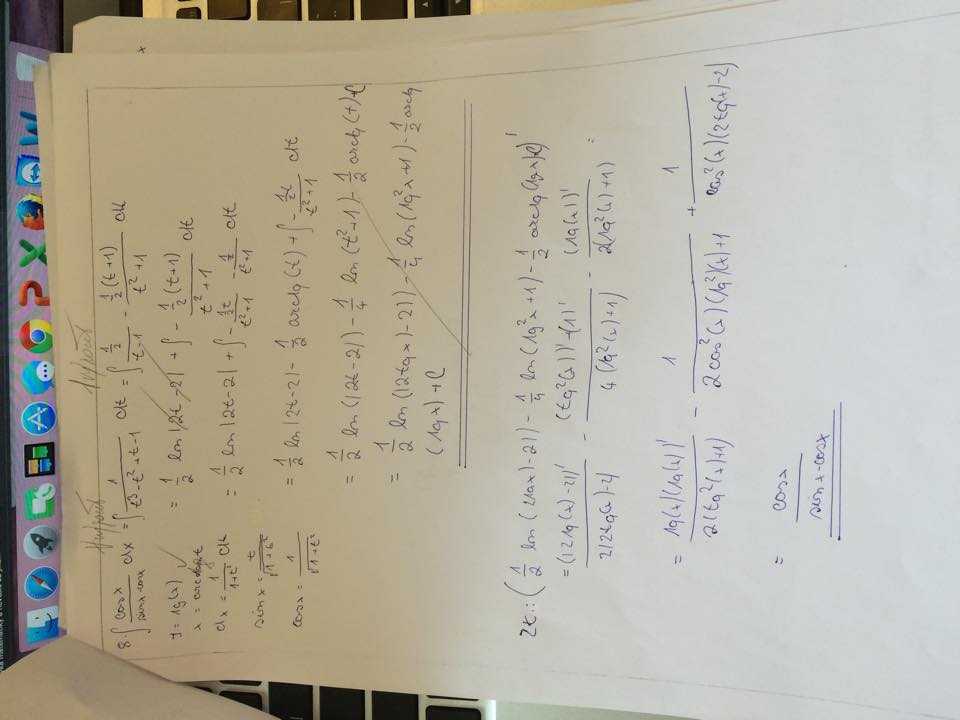 8. ∫ cosx/(sinx-cosx) dx = ∫ 1/(t³-t²+t-1) dt = ∫ (1/2)/(t-1) - (1/2(t+1))/(t²+1) dt
= 1/2 ln|2t-2| + ∫ - (1/2(t+1))/(t²+1) dt
x = arctgt
dx = 1/(1+t²) dt
= 1/2 ln|2t-2| + ∫ - (1/2t)/(t²+1) - (1/2)/(t²+1) dt
sinx = t/√(1+t²)
cosx = 1/√(1+t²)
= 1/2 ln|2t-2| - 1/2 arctg(t) + ∫ - (1/2t)/(t²+1) dt
= 1/2 ln(|2t-2|) - 1/4 ln(t²+1) - 1/2 arctg(t)+C
= 1/2 ln(|2tgx-2|) - 1/4 ln(tg²x+1) - 1/2 arctg
(tgx)+C
Zk.: (1/2 ln(|2tgx|-2|) - 1/4 ln(tg²x+1) - 1/2 arctg(tgx)+C)'
= (|2tg(x)-2|)'/2|2tg(x)-2| - ((tg²(x))'+(1)')/4(tg²(x)+1) - (tg(x))'/2(tg²(x)+1) =
= tg(x)(tg(x))'/2(tg²(x)+1) - 1/2cos²(x)(tg²)(x)+1 + 1/cos²(x)(2tg(x)-2)
= cosx/(sinx-cosx)